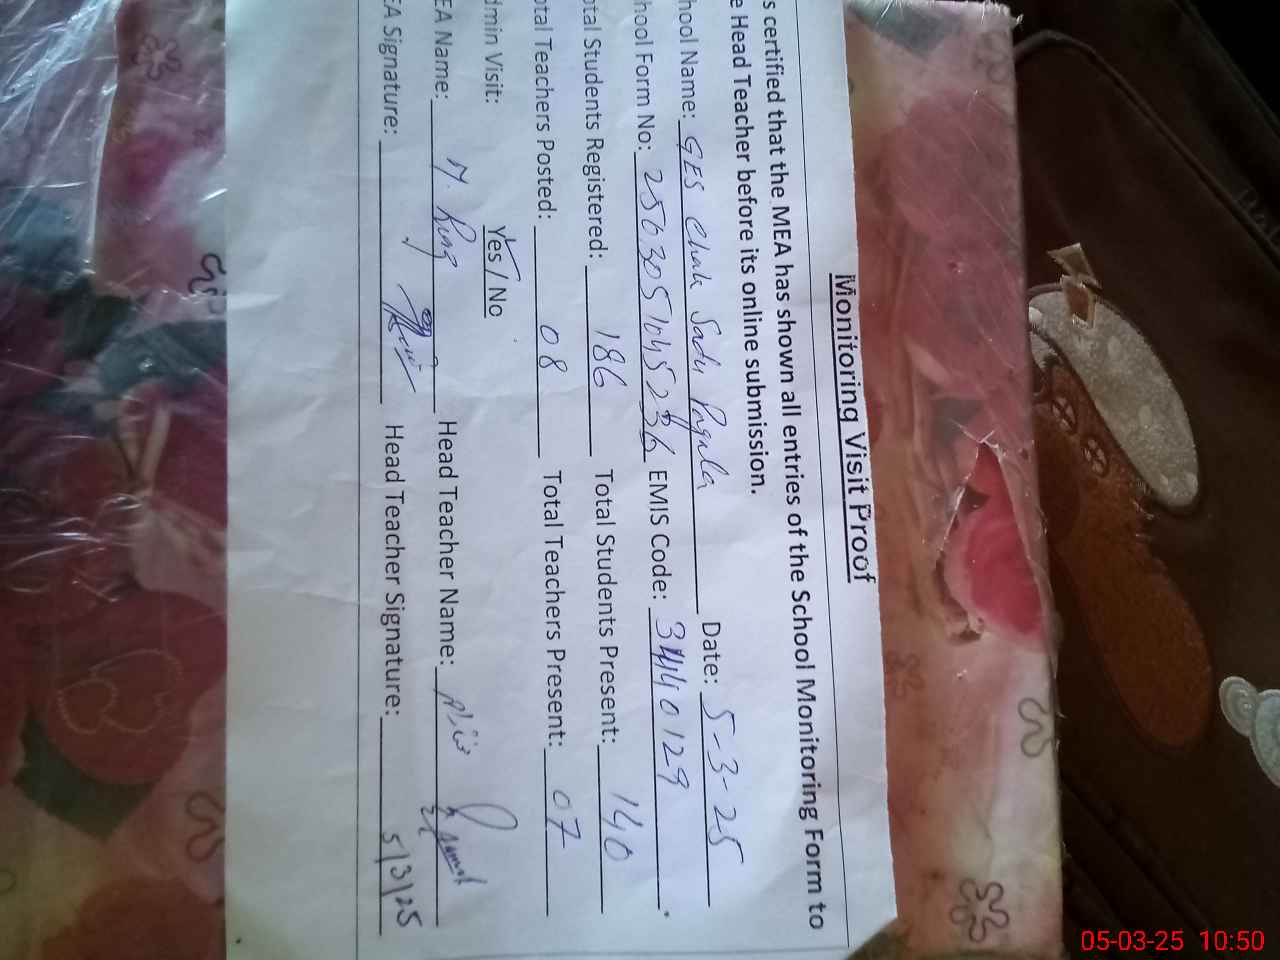 Monitoring Visit Proof
s certified that the MEA has shown all entries of the School Monitoring Form to
e Head Teacher before its online submission.
hool Name: GES Chak Sadu Pagala Date: 5-3-25
hool Form No: 2563051045236 EMIS Code: 34410129
otal Students Registered: 186 Total Students Present: 140
otal Teachers Posted: 08 Total Teachers Present: 07
dmin Visit: Yes / No
EA Name: M. Head Teacher Name:
EA Signature: Head Teacher Signature: 5/3/25
05-03-25 10:50